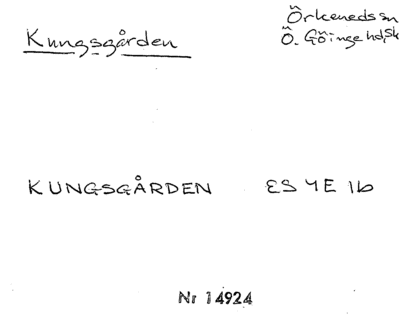 Kungsgården
Örkeneds sn
Ö. Göinge hd, Sk
KUNGSGÅRDEN ES 4E 1b
Nr 14924